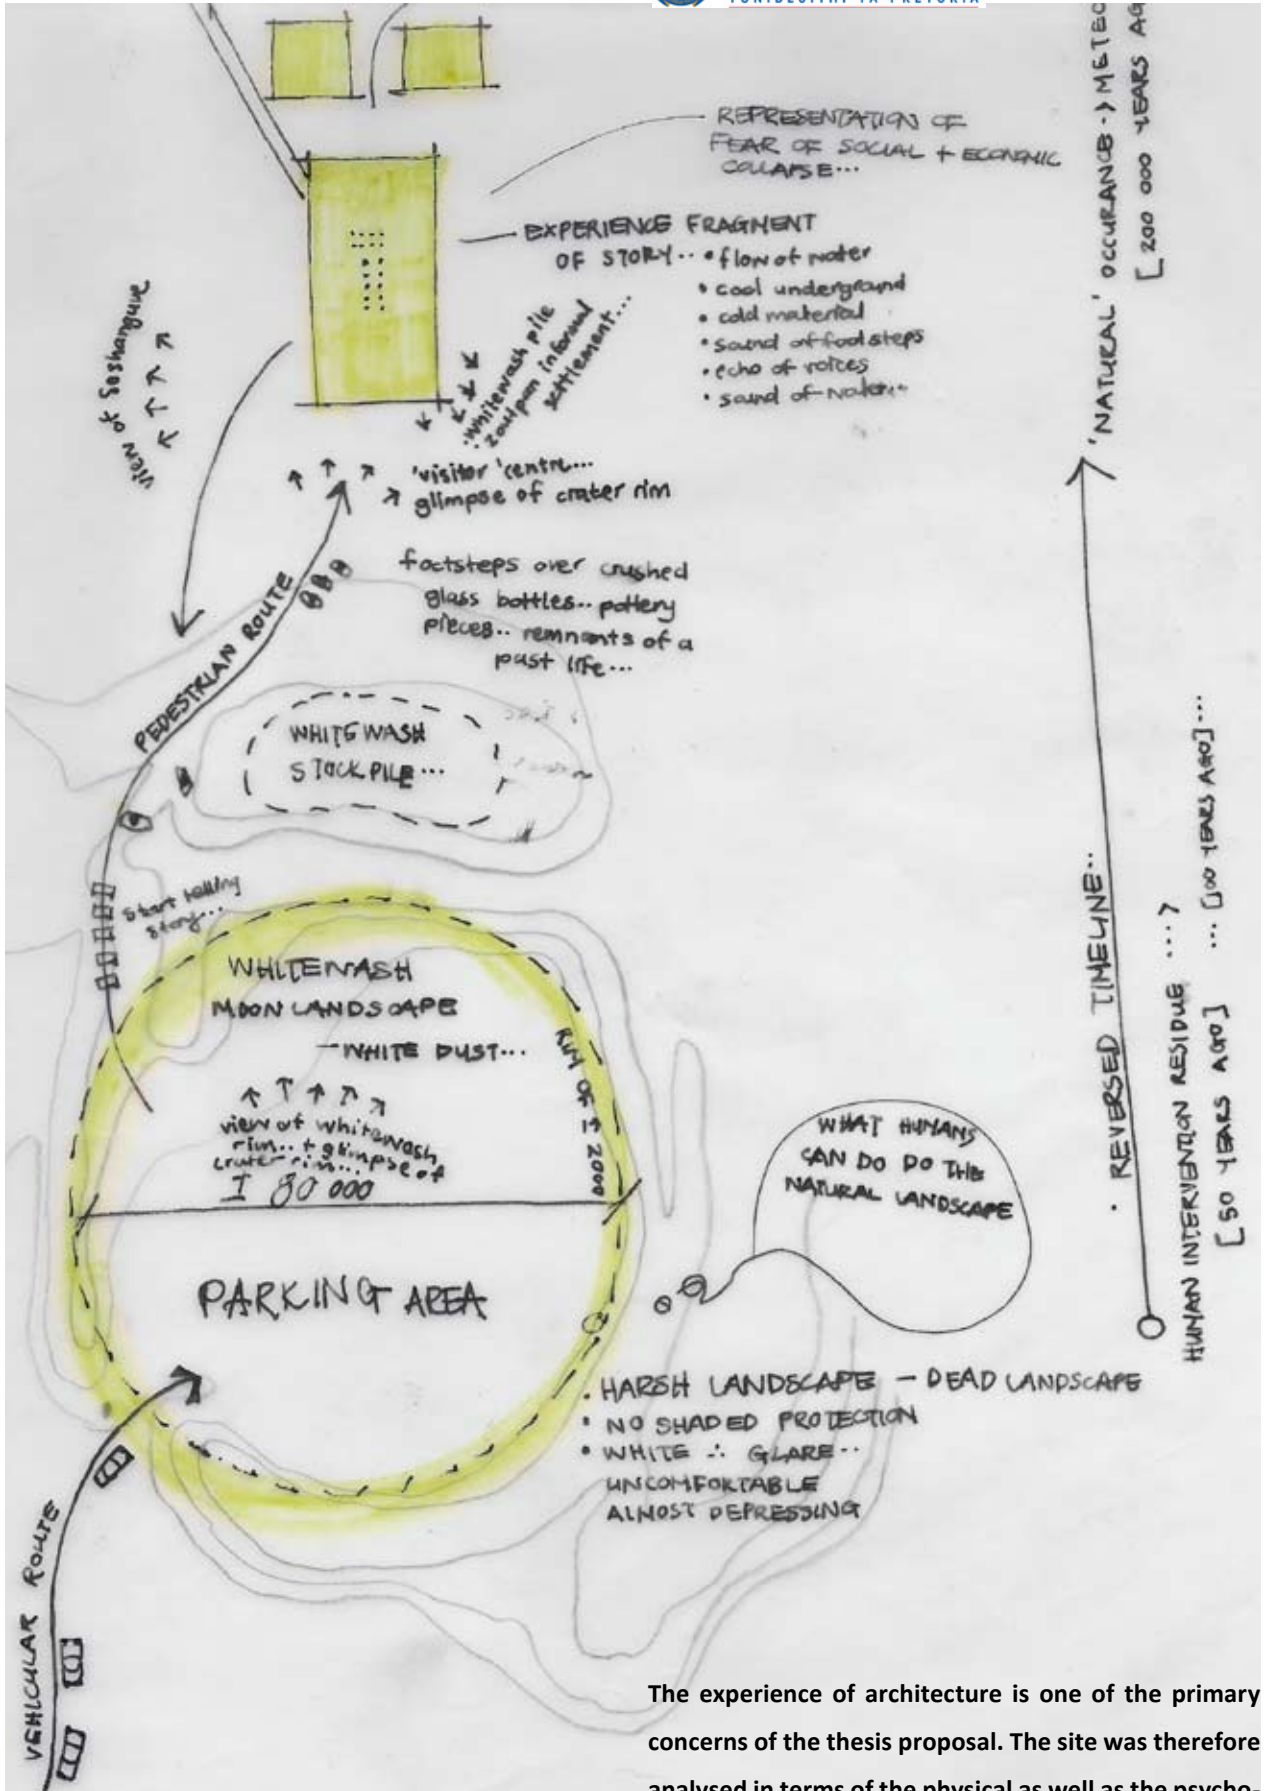 REPRESENTATION OF
FEAR OF SOCIAL + ECONOMIC
COLLAPSE...
EXPERIENCE FRAGMENT
OF STORY..
• flow of water
• cool underground
• cold material
• sound of footsteps
• echo of voices
• sound of water..
view of Soshanguve
• whitewash pile
• zoutpan informal
settlement...
'visitor' centre...
glimpse of crater rim
footsteps over crushed
glass bottles.. pottery
pieces.. remnants of a
past life...
PEDESTRIAN ROUTE
WHITEWASH
STOCKPILE...
Start telling
story...
WHITEWASH
MOON LANDSCAPE
- WHITE DUST...
RIM OF
2000
view of whitewash
rim.. + glimpse of
crater rim...
80 000
PARKING AREA
WHAT HUMANS
CAN DO DO THE
NATURAL LANDSCAPE
• HARSH LANDSCAPE - DEAD LANDSCAPE
• NO SHADED PROTECTION
• WHITE ∴ GLARE..
UNCOMFORTABLE
ALMOST DEPRESSING
VEHICULAR ROUTE
'NATURAL' OCCURANCE -> METEO
[200 000 YEARS AG
• REVERSED TIMELINE..
HUMAN INTERVENTION RESIDUE ...>
[50 YEARS AGO] ... [100 YEARS AGO]...
The experience of architecture is one of the primary
concerns of the thesis proposal. The site was therefore
analysed in terms of the physical as well as the psycho-